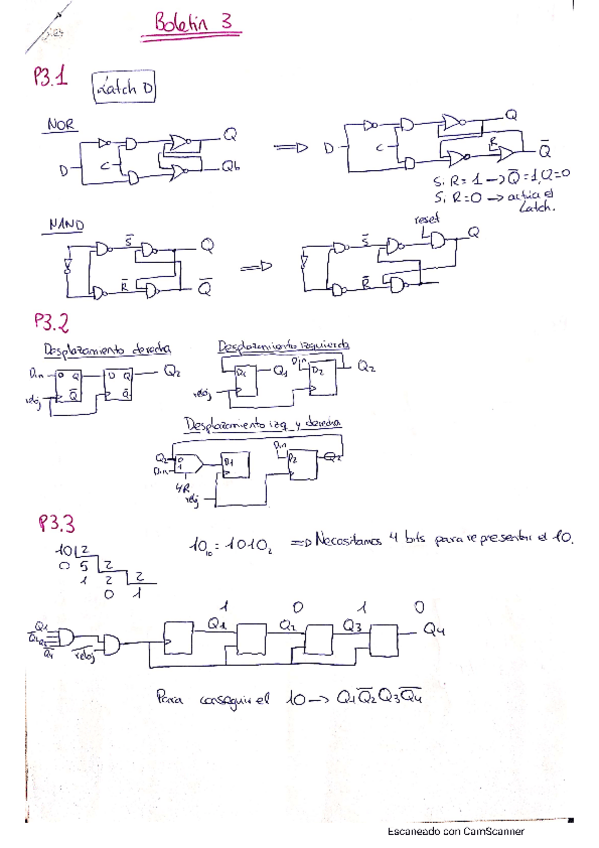 Boletin 3
P3.1 Latch D
NOR
D C Q Qb
D C R Q Q̅
Si R=1 → Q̅=1, Q=0
Si R=0 → actua el
Latch.
NAND
S̅ R̅ Q Q̅
S̅ R̅ reset Q
P3.2
Desplazamiento derecha
Din D Q Q̅ D Q Q̅ Q2
reloj
Desplazamiento izquierda
D1 Q1 Din D2 Q2
reloj
Desplazamiento izq y derecha
Q2 0 1 D1 Din D2 Q2
Din
reloj
P3.3
10 2
0 5 2
1 2 2
0 1
10₁₀ = 1010₂ ⇒ Necesitamos 4 bits para representar el 10.
1 0 1 0
Q1 Q2 Q3 Q4
reloj
Para conseguir el 10 → Q1Q̅2Q3Q̅4
Escaneado con CamScanner